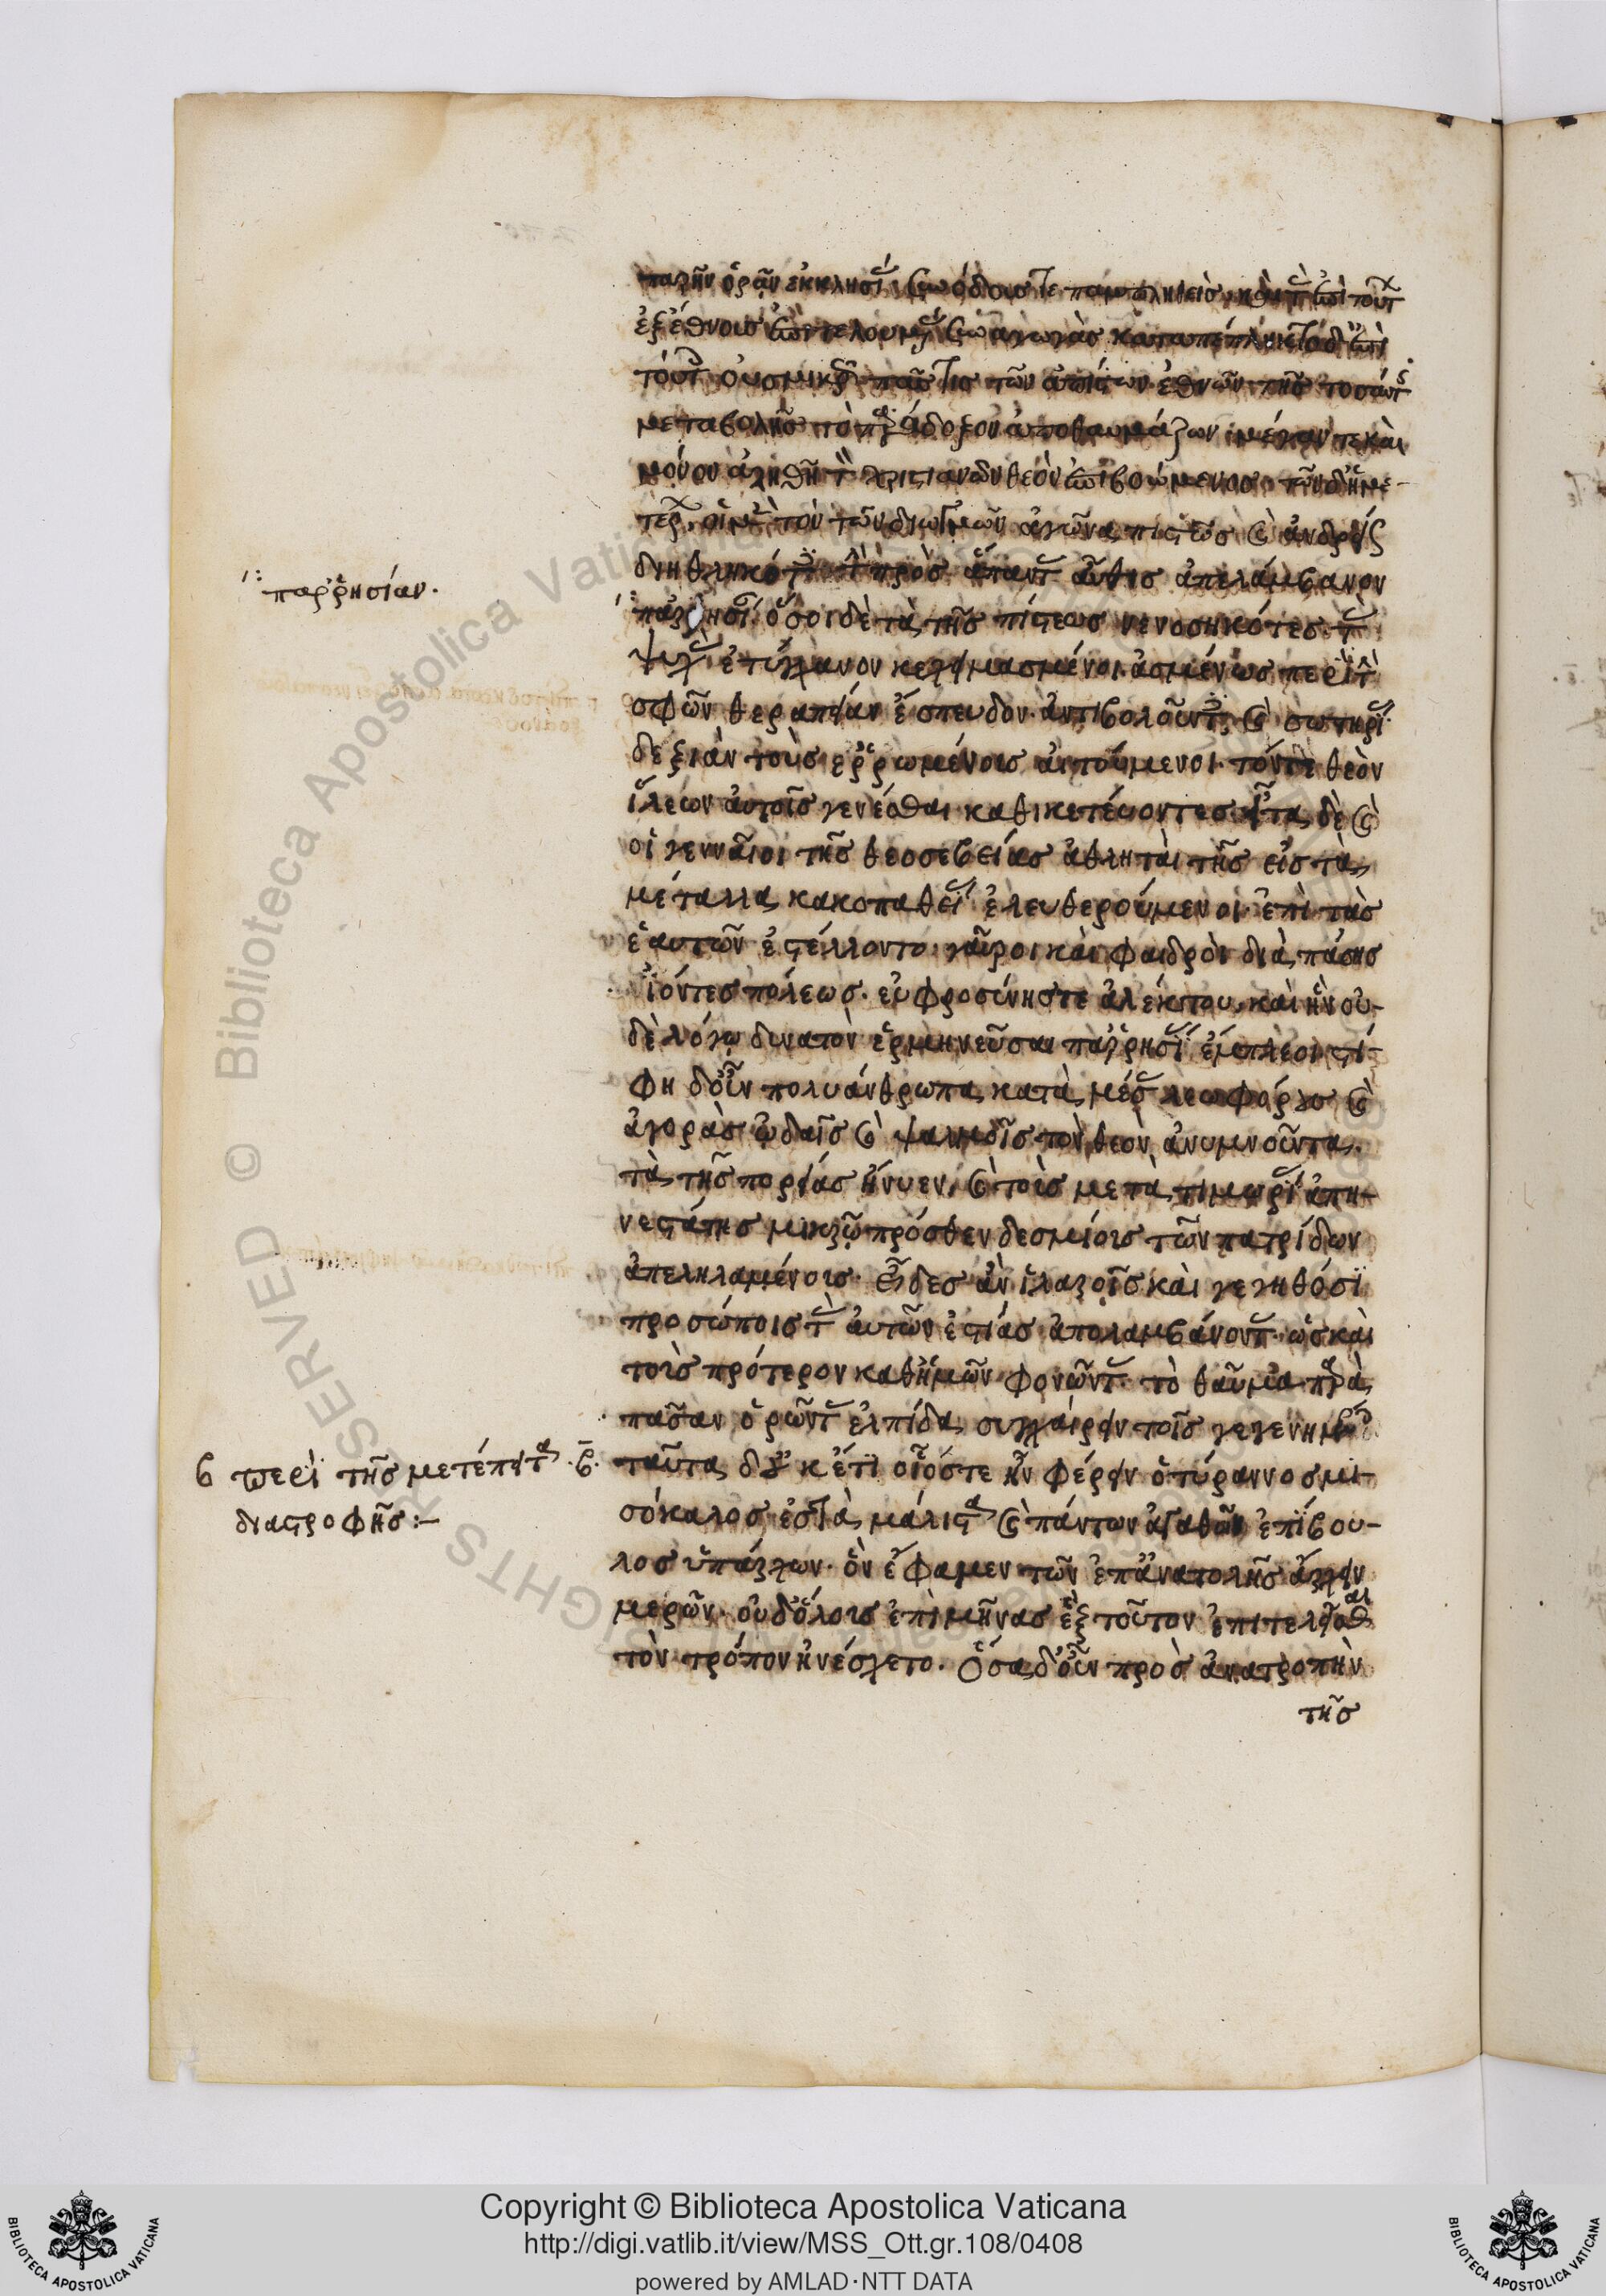 παρῆν ὁρᾶν ἐκκλησίας συνόδους τε παμπληθεῖς καὶ τὰς ἐπὶ τούτων
ἐξ ἔθνους ἐπιτελουμένας συναγωγάς καταπέπληκτο δ' ἐπὶ
τούτοις οὐ σμικρῶς πᾶς τις τῶν ἀπίστων ἐθνῶν τῆς τοσαύτης
μεταβολῆς τὸ παράδοξον ἀποθαυμάζων· μέγαν τε καὶ
μόνον ἀληθῆ τὸν χριστιανῶν θεὸν ἐπιβοώμενος· τῶν δ' ἡμε-
τέρων, οἱ μὲν τὸν τῶν διωγμῶν ἀγῶνα πιστῶς καὶ ἀνδρείως
διηθληκότες τὴν πρὸς ἅπαντας αὖθις ἀπελάμβανον
παρρησίαν· ὅσοι δὲ τὰ τῆς πίστεως νενοσηκότες τὰς
ψυχὰς ἐτύγχανον κεχειμασμένοι· ἀσμένως περὶ τὴν
σφῶν θεραπείαν ἔσπευδον· ἀντιβολοῦντες καὶ σωτηρίας
δεξιὰν τοὺς ἐρρωμένους αἰτούμενοι· τόν τε θεὸν
ἵλεων αὐτοῖς γενέσθαι καθικετεύοντες· εἶτα δὲ καὶ
οἱ γενναῖοι τῆς θεοσεβείας ἀθληταὶ τῆς εἰς τὰ
μέταλλα κακοπαθείας ἐλευθερούμενοι ἐπὶ τὰς
ἑαυτῶν ἐστέλλοντο· γαῦροι καὶ φαιδροὶ διὰ πάσης
ἰόντες πόλεως· εὐφροσύνης τε ἀλέκτου· καὶ ἣν οὐ-
δὲ λόγῳ δυνατὸν ἑρμηνεῦσαι παρρησίας ἔμπλεοι στί-
φη δ' οὖν πολυάνθρωπα κατὰ μέσας λεωφόρους καὶ
ἀγορὰς ᾠδαῖς καὶ ψαλμοῖς τὸν θεὸν ἀνυμνοῦντα.
τὰ τῆς πορείας ἤνυεν, καὶ τοὺς μετὰ τιμωρίας ἀπη-
νεστάτης μικρῷ πρόσθεν δεσμίους τῶν πατρίδων
ἀπεληλαμένους· εἶδες ἂν ἱλαροῖς καὶ γεγηθόσι
προσώποις τὰς αὐτῶν ἑστίας ἀπολαμβάνοντας· ὡς καὶ
τοὺς πρότερον καθ' ἡμῶν φονῶντας τὸ θαῦμα παρὰ
πᾶσαν ὁρῶντας ἐλπίδα συγχαίρειν τοῖς γεγενημένοις
ταῦτα δ' οὐκέτι οἷός τε ὢν φέρειν ὁ τύραννος μι-
σόκαλος ἐς τὰ μάλιστα καὶ πάντων ἀγαθῶν ἐπίβου-
λος ὑπάρχων· ὃν ἔφαμεν τῶν ἐπ' ἀνατολῆς ἄρχειν
μερῶν· οὐδ' ὅλους ἐπὶ μῆνας ἓξ τοῦτον ἐπιτελεῖσθαι
τὸν τρόπον ἠνέσχετο. Ὅσα δ' οὖν πρὸς ἀνατροπὴν
τῆς
παρρησίαν.
β περὶ τῆς μετέπειτα β.
διαστροφῆς:-
Copyright © Biblioteca Apostolica Vaticana
http://digi.vatlib.it/view/MSS_Ott.gr.108/0408
powered by AMLAD·NTT DATA
BIBLIOTECA APOSTOLICA VATICANA
BIBLIOTECA APOSTOLICA VATICANA